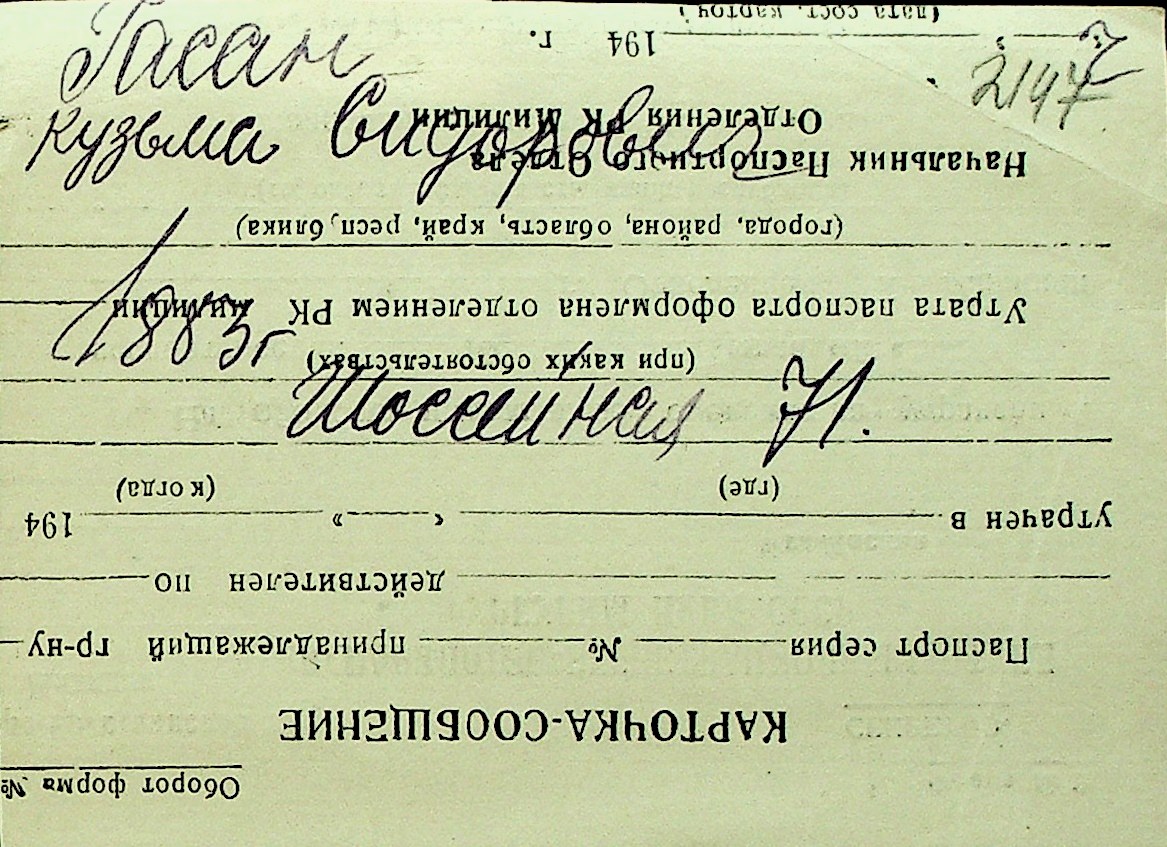 Гасан
2147
Кузьма Сидорович
1883г
Шоссейная 71.
Оборот форма №
КАРТОЧКА-СООБЩЕНИЕ
Паспорт серия № принадлежащий гр-ну
действителен по
утрачен в « » 194
(где) (когда)
(при каких обстоятельствах)
Утрата паспорта оформлена отделением РК милиции
(города, района, область, край, респ,блика)
Начальник Паспортного Отдела
Отделения РК Милиции
« » 194 г.
(дата сост. карточ)